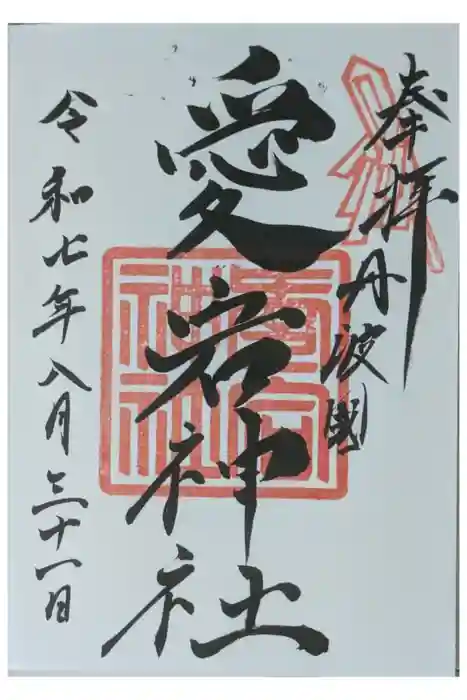 奉拝
丹波國
愛宕神社
令和七年八月三十一日